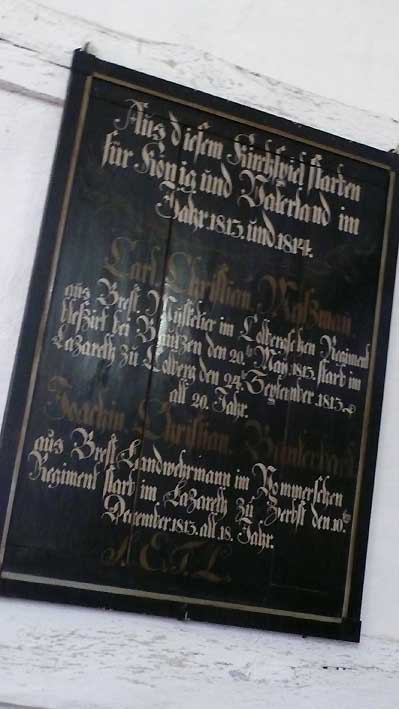 Aus diesem Kirchspiel starben
für König und Vaterland im
Jahr 1813. und 1814.
Carl Christian
aus Brest Musketier im Colbergschen Regiment
blessirt bei Bautzen den 20ten May 1813. starb im
Lazareth zu Colberg den 24ten September 1813.
alt 20. Jahr.
Joachim Christian
aus Brest Landwehrmann im Pommerschen
Regiment starb im Lazareth zu Zerbst den 10ten
December 1813. alt 18. Jahr.
S. E. T. L.